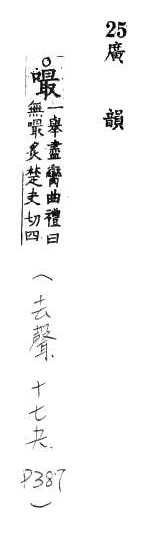 25廣韻
○嘬一舉盡臠曲禮曰
無嘬炙楚夬切四
(去聲 十七夬 P387)